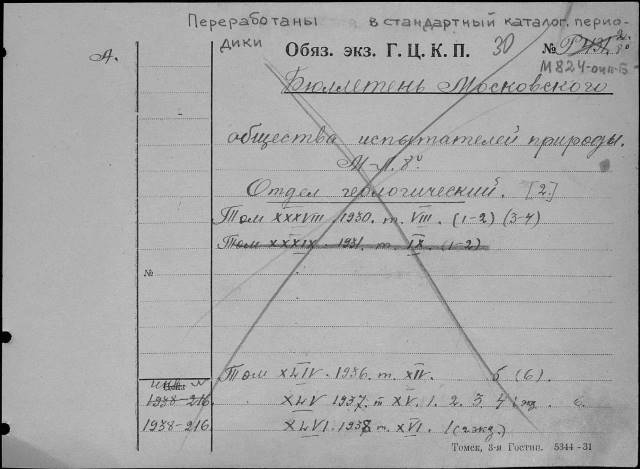 Переработаны в стандартный каталог перио-
дики
А.
Обяз. экз. Г. Ц. К. П. 30 № Р431 2.8°
М824-оип-Б
Бюллетень Московского
общества испытателей природы.
М-Л. 8°
Отдел геологический. [2.]
Том XXXVIII. 1930. т. VIII. (1-2) (3-4)
Том XXXIX. 1931. т. IX. (1-2)
№
Том XLIV. 1936. т. XIV. 5 (6).
1938-216. XLV 1937. т XV. 1. 2. 3. 4 1 экз. 6.
1938-216. XLVI. 1938. т. XVI. 1 (2 экз.)
Томск, 3-я Гостип. 5344-31